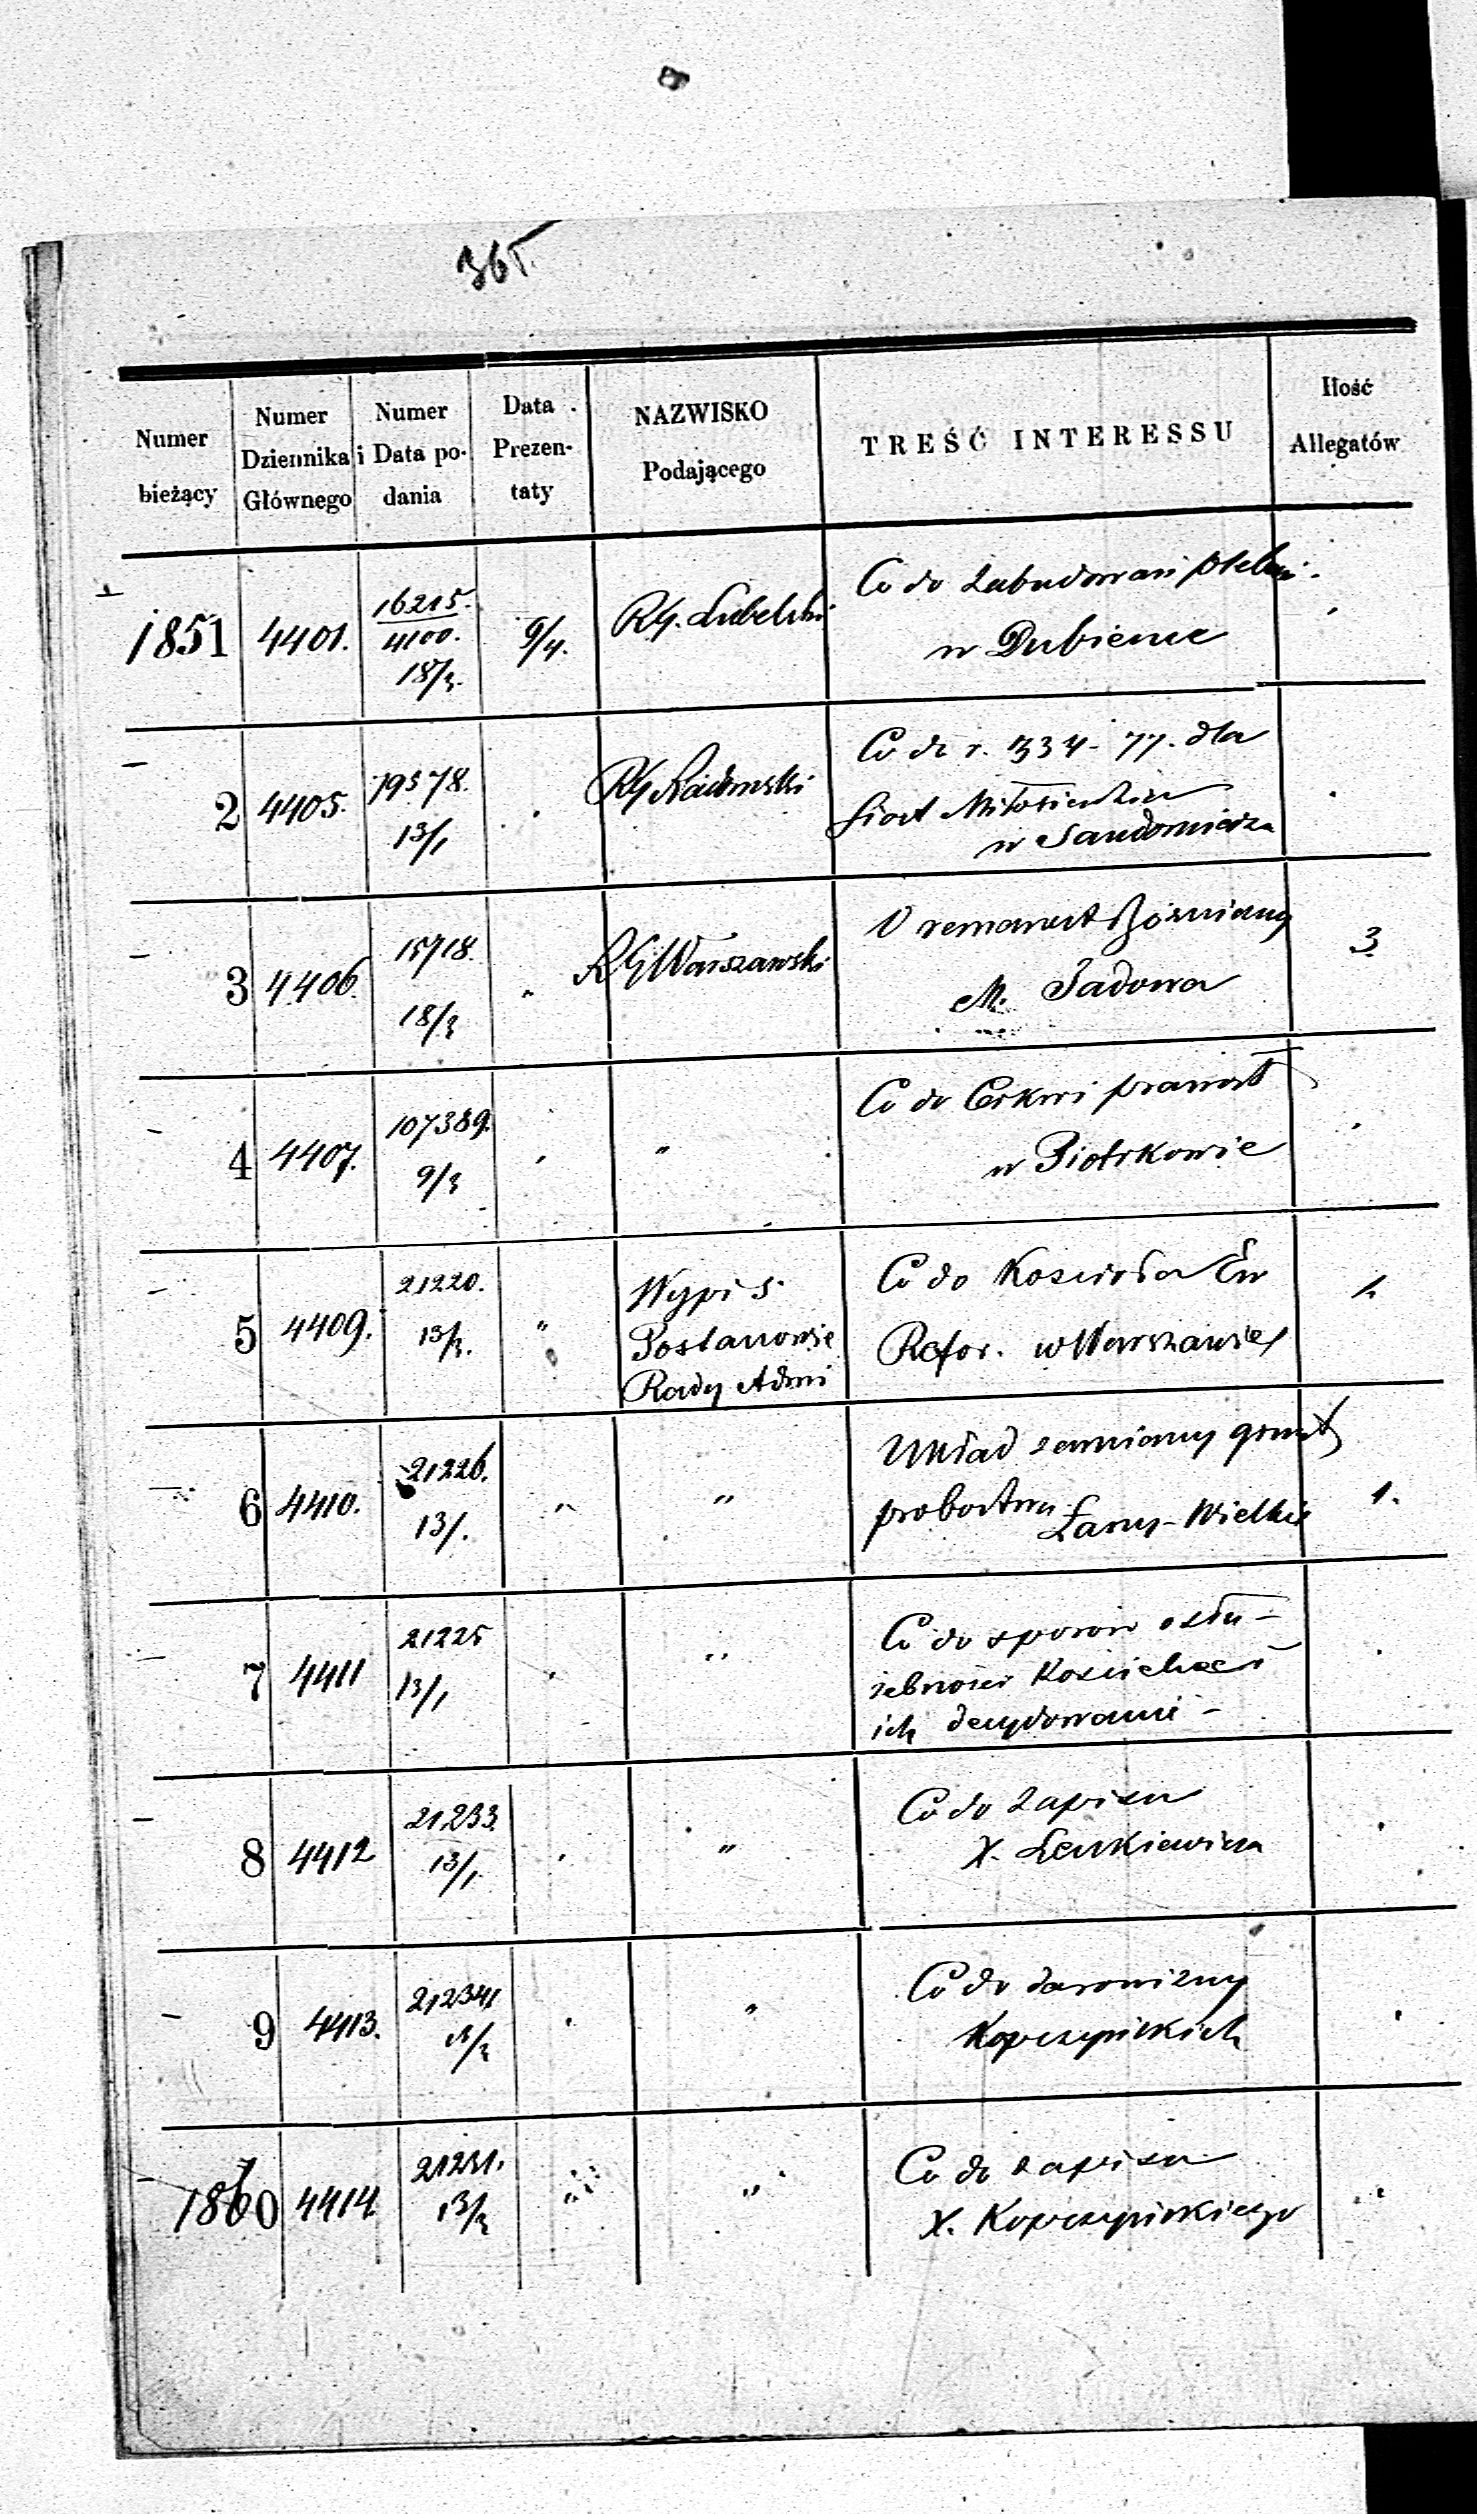 365.
Numer bieżący | Numer Dziennika Głównego | Numer i Data podania | Data Prezentaty | NAZWISKO Podającego | TREŚĆ INTERESSU | Ilość Allegatów
1851 4401. 16215. 9/4. RG. Lubelski Co do Zabudowań plebani.
4100. w Dubience
18/3.
2 4405. 19578. RG Radomski Co do r. 1334 - 77. dla
13/1 Siost Miłosierdzia
w Sandomierzu
3 4406. 15718. " RG Warszawski O remanent Bóżnicny 3
18/3 M. Jadowa
4 4407. 107389. " " Co do Cerkwi prawosł
9/3 w Piotrkowie
5 4409. 21220. " Wypis Co do Kościoła Ew 1.
13/3. Postanowie Refor. w Warszawie
Rady Admi
6 4410. 21226. " " Układ zamiany grunt 1.
13/. probostwa
Łany-Wielkie
7 4411 21225 " " Co do sporów o słu-
13/1 żebności Kościelne i
ich decydowanie -
8 4412 21233. " " Co do Zapisu
13/1 X. Lenkiewicza
9 4413. 21234 " " Co do darowizny
Kopczyńskich
1860 4414 21231. " " Co do zapisu
13/3 X. Kopczyńskiego